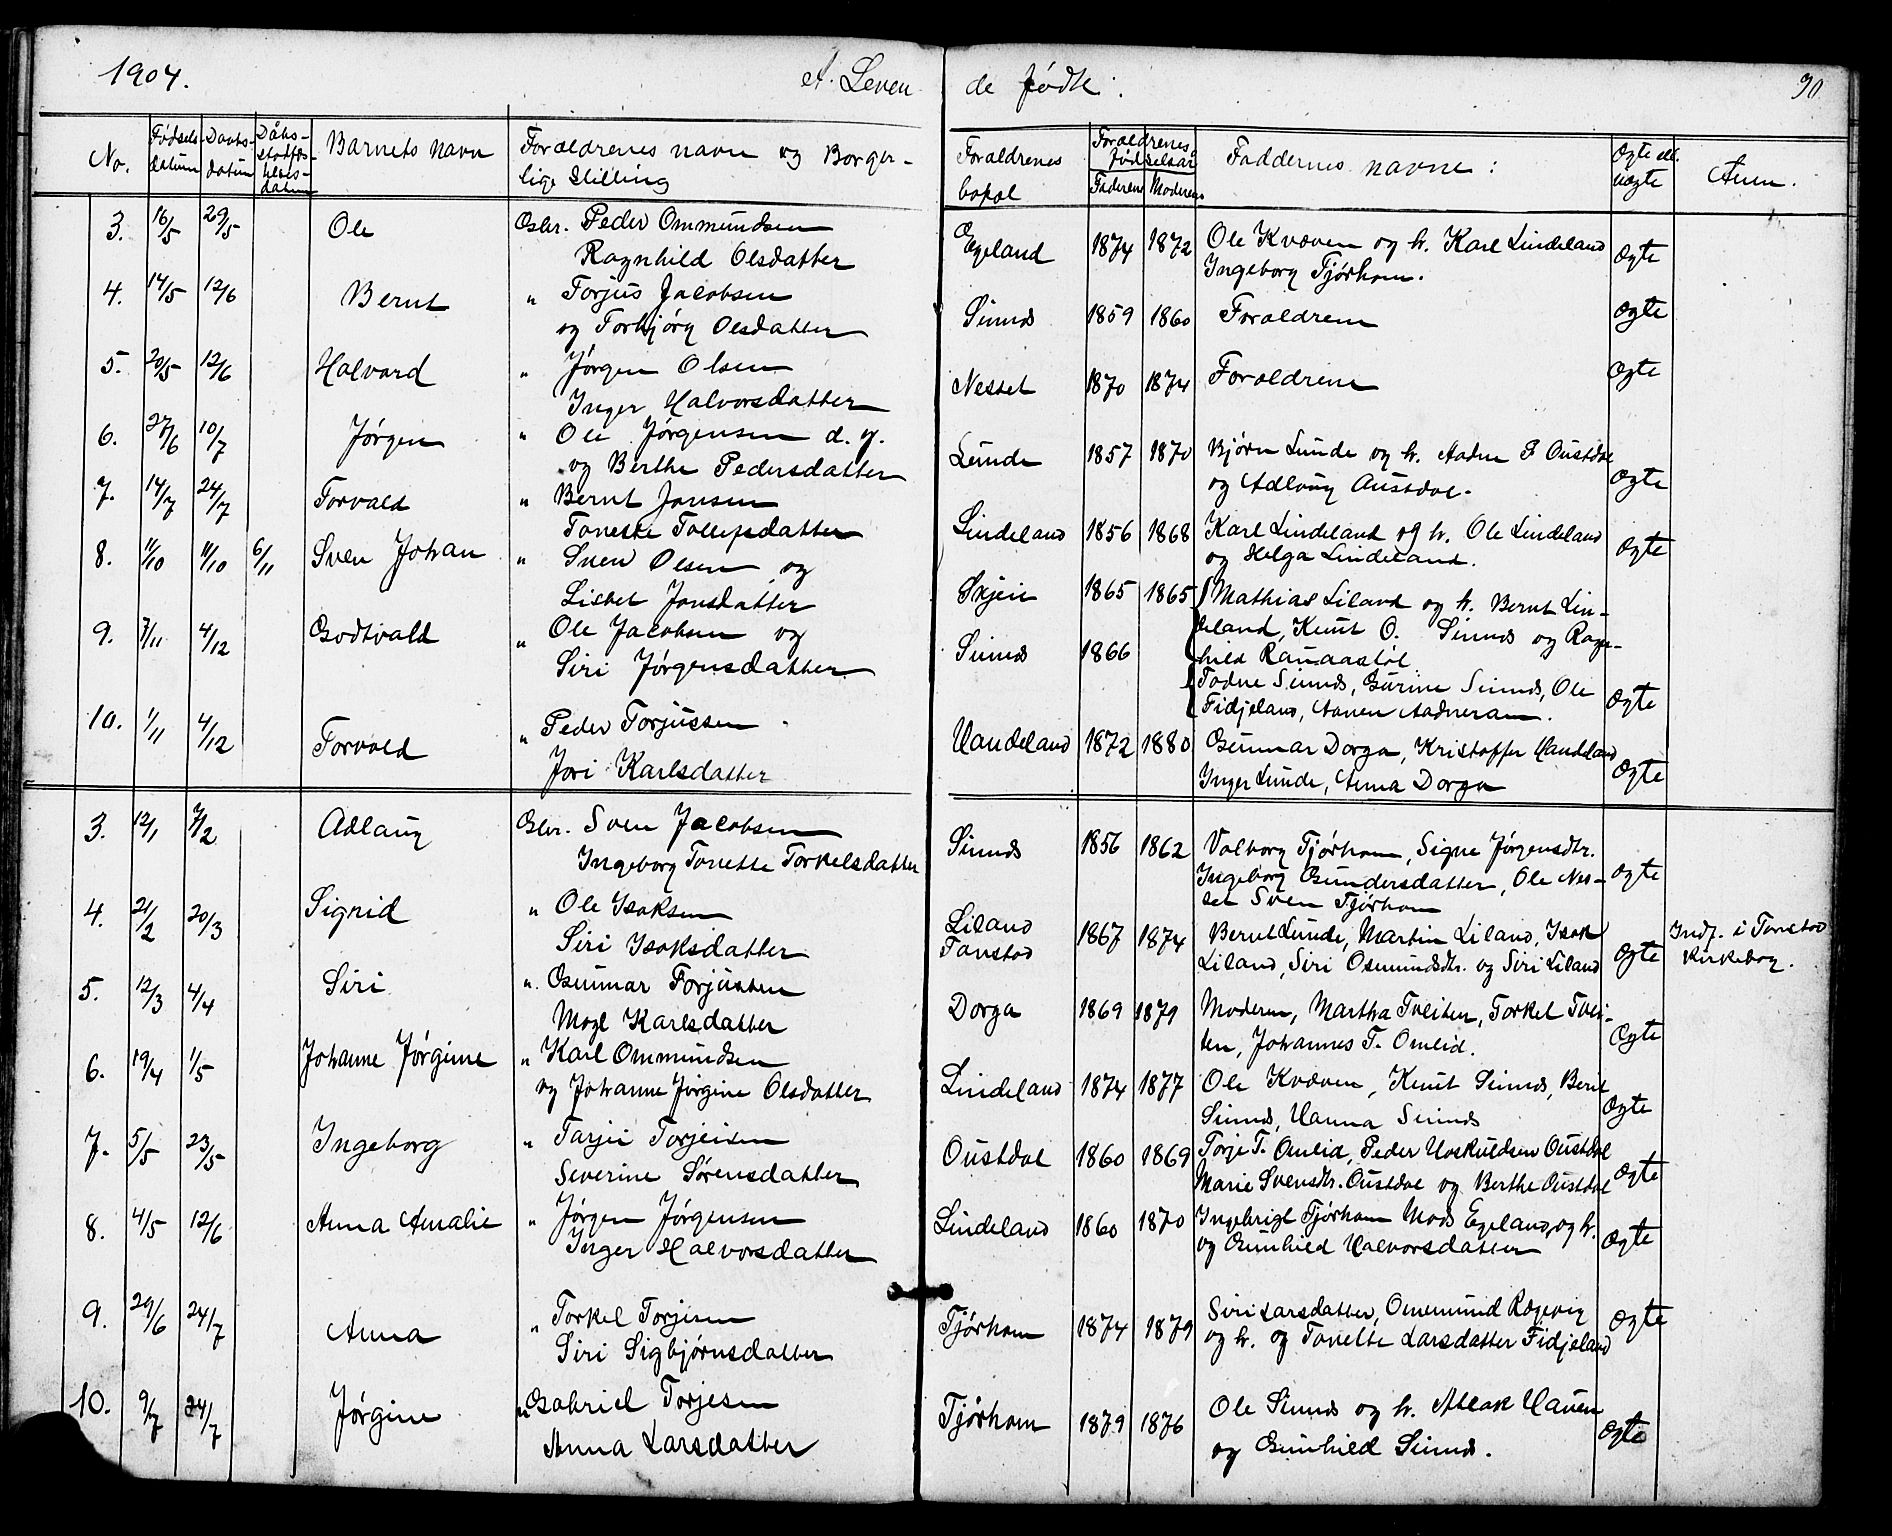 1904.
A. Leven
de fødte.
90
No.
Fødsels-
datum
Daabs-
datum
Dåbs-
stadfæs-
telses-
datum
Barnets navn
Foræeldrenes navn og Borger-
lige Stilling
Forældrenes
bopæl
Forældrenes
fødselsår
Faderens
Moderens
Faddernes navne:
Ægte ell.
uægte
Anm.
3. 16/5 29/5 Ole Gbr. Peder Ommundsen Egeland 1874 1872 Ole Kvæven og h. Karl Lindeland Ægte
Ragnhild Olsdatter Ingeborg Tjørhom.
4. 14/5 12/6 Bernt " Torjus Jacobsen Sinnes 1859 1860 Forældrene Ægte
og Torbjørg Olsdatter
5. 20/5 12/6 Halvard " Jørgen Olsen Nesset 1870 1874 Forældrene Ægte
Inger Halvorsdatter
6. 27/6 10/7 Jørgen " Ole Jørgensen d. y. Lunde 1857 1870 Bjørn Lunde og h. Aadne P Oustdal Ægte
og Berthe Pedersdatter og Adlaug Austdal.
7. 14/7 24/7 Torvald " Bernt Jansen Lindeland 1856 1868 Karl Lindeland og h. Ole Lindeland Ægte
Tonette Tollefsdatter og Helga Lindeland.
8. 11/10 11/10 6/11 Sven Johan " Sven Olsen og Skjeie 1865 1865 Mathias Liland og h. Bernt Lin-
Lisbet Jonsdatter deland, Knut O. Sinnes og Ragn-
hild Randastøl
9. 7/11 4/12 Godtvald " Ole Jacobsen og Sinnes 1866 Tadne Sinnes, Gurine Sinnes, Ole Ægte
Siri Jørgensdatter Fidjeland, Aanen Aadneram.
10. 1/11 4/12 Torvald " Peder Torjussen Haudeland 1872 1880 Gunnar Dorga, Kristoffer Haudeland Ægte
Jori Karlsdatter Inger Lunde, Anna Dorga
3. 12/1 7/2 Adlaug Gbr. Sven Jacobsen Sinnes 1856 1862 Valborg Tjørhom, Signe Jørgensdtr. Ægte
Ingeborg Tonette Torkelsdatter Ingeborg Gundersdatter, Ole Nes-
set Sven Tjørhom
4. 21/2 20/3 Sigrid " Ole Isaksen Liland 1867 1874 Bernt Lunde, Martin Liland, Isak Ægte Indf. i Tonstad
Siri Isaksdatter Tonstad Liland, Siri Osmundsdtr. og Siri Liland Kirkebog.
5. 12/3 4/4 Siri " Gunnar Torjussen Dorga 1869 1879 Moderen, Martha Tveiten, Torkel Tvei- Ægte
Magl Karlsdatter ten, Johannes T. Omlid.
6. 19/4 1/5 Johanne Jørgine " Karl Ommundsen Lindeland 1874 1877 Ole Kvæven, Knut Sinnes, Berit Ægte
og Johanne Jørgine Olsdatter Sinnes, Hanna Sinnes
7. 5/5 23/5 Ingeborg " Tarjei Torjeisen Oustdal 1860 1869 Torje T. Omlid, Peder Hoskuldsen Oustdal Ægte
Severine Sørensdatter Marie Svensdtr. Oustdal og Berthe Oustdal
8. 4/5 12/6 Anna Amalie " Jørgen Jørgensen Lindeland 1860 1870 Ingebrigt Tjørhom Mads Egeland, og h. Ægte
Inger Halvorsdatter og Gunhild Halvorsdatter
9. 29/6 24/7 Anna " Torkel Torjesen Tjørhom 1874 1879 Siri Larsdatter, Ommund Rægevig Ægte
Siri Sigbjørnsdatter og h. og Tonette Larsdatter Fidjeland
10. 9/7 24/7 Jørgine " Gabriel Torjesen Tjørhom 1879 1876 Ole Sinnes og h. Atlak Hauen Ægte
Anna Larsdatter og Gunhild Sinnes.